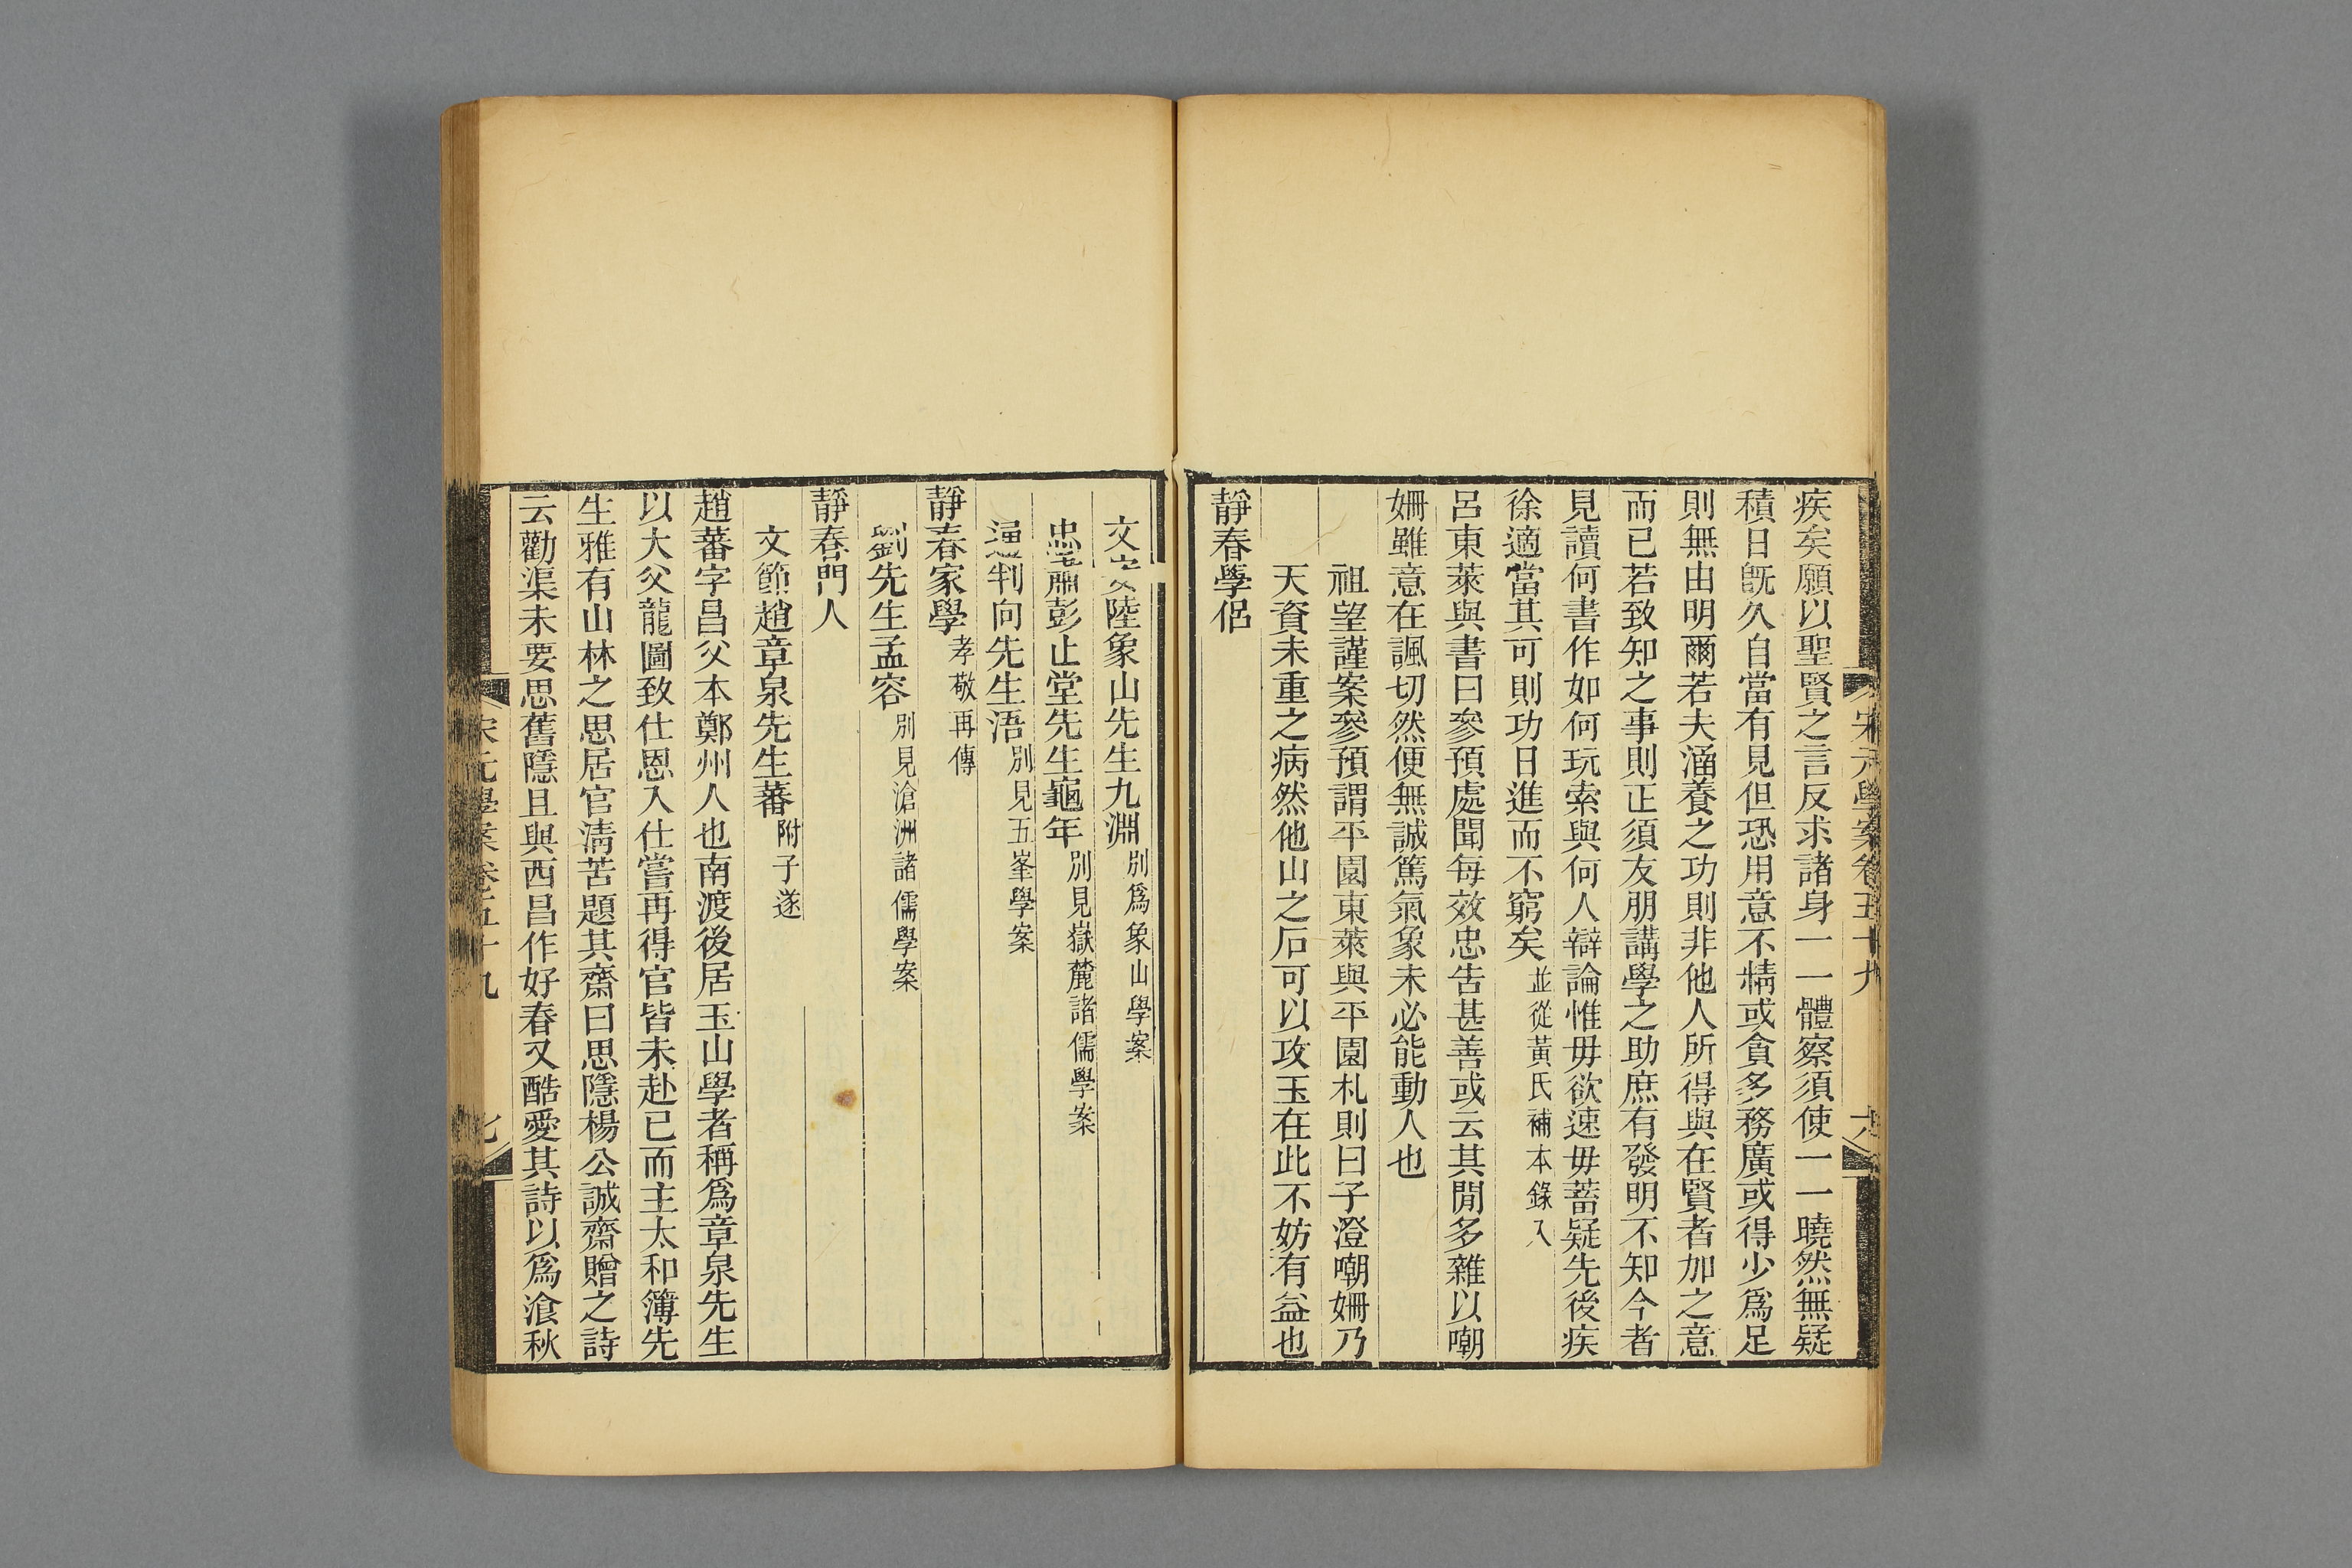 宋元學案卷五十九
六
疾矣願以聖賢之言反求諸身一一體察須使一一曉然無疑
積日旣久自當有見但恐用意不精或貪多務廣或得少爲足
則無由明爾若夫涵養之功則非他人所得與在賢者加之意
而已若致知之事則正須友朋講學之助庶有發明不知今者
見讀何書作如何玩索與何人辯論惟毋欲速毋蓄疑先後疾
徐適當其可則功日進而不窮矣並從黃氏補本錄入
呂東萊與書曰參預處聞每效忠告甚善或云其閒多雜以嘲
姍雖意在諷切然便無誠篤氣象未必能動人也
祖望謹案參預謂平園東萊與平園札則曰子澄嘲姍乃
天資未重之病然他山之石可以攻玉在此不妨有益也
靜春學侶
文安陸象山先生九淵別爲象山學案
忠肅彭止堂先生龜年別見嶽麓諸儒學案
通判向先生浯別見五峯學案
靜春家學孝敬再傳
劉先生孟容別見滄洲諸儒學案
靜春門人
文節趙章泉先生蕃附子遂
趙蕃字昌父本鄭州人也南渡後居玉山學者稱爲章泉先生
以大父龍圖致仕恩入仕嘗再得官皆未赴已而主太和簿先
生雅有山林之思居官淸苦題其齋曰思隱楊公誠齋贈之詩
云勸渠未要思舊隱且與西昌作好春又酷愛其詩以爲飡秋
宋元學案卷五十九
七